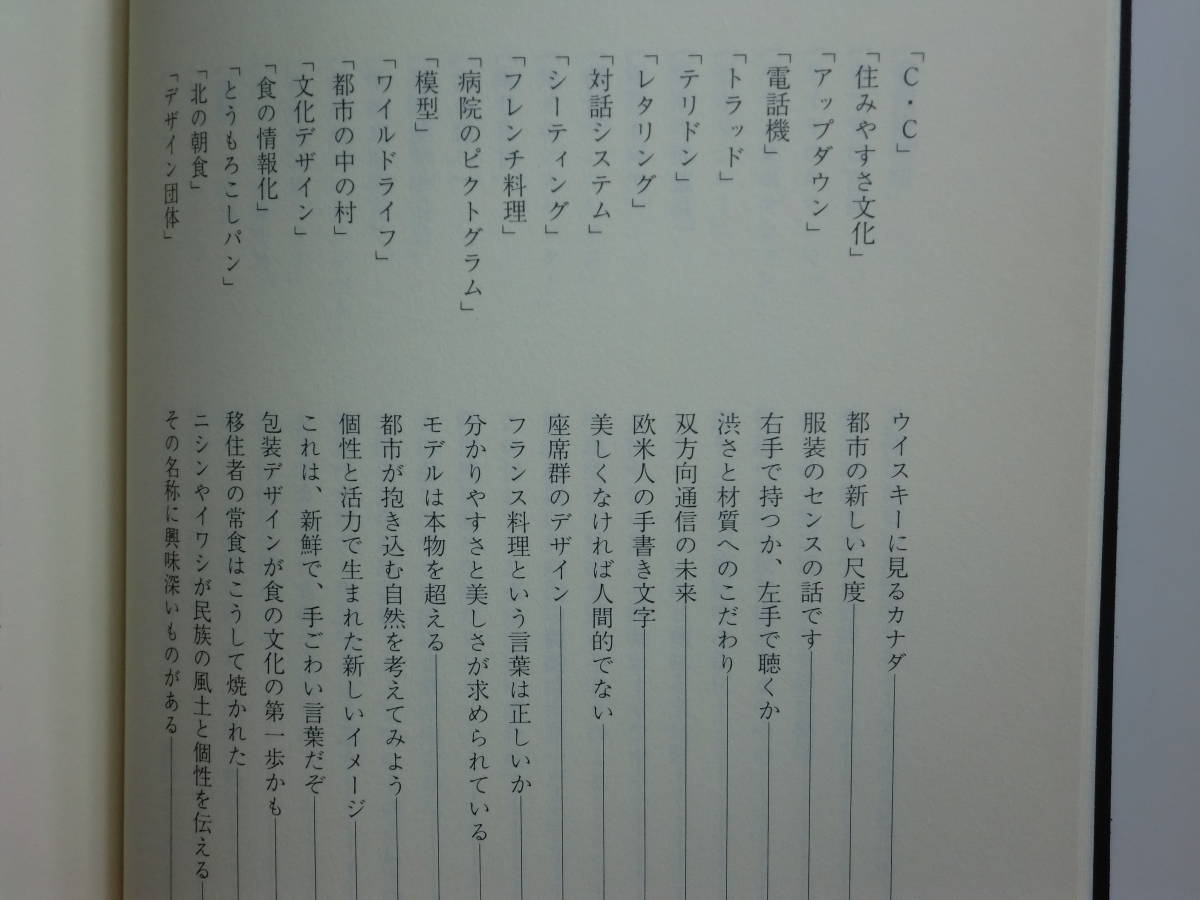 「C・C」 ウイスキーに見るカナダ
「住みやすさ文化」 都市の新しい尺度
「アップダウン」 服装のセンスの話です
「電話機」 右手で持つか、左手で聴くか
「トラッド」 渋さと材質へのこだわり
「テリドン」 双方向通信の未来
「レタリング」 欧米人の手書き文字
「対話システム」 美しくなければ人間的でない
「シーティング」 座席群のデザイン
「フレンチ料理」 フランス料理という言葉は正しいか
「病院のピクトグラム」 分かりやすさと美しさが求められている
「模型」 モデルは本物を超える
「ワイルドライフ」 都市が抱き込む自然を考えてみよう
「都市の中の村」 個性と活力で生まれた新しいイメージ
「文化デザイン」 これは、新鮮で、手ごわい言葉だぞ
「食の情報化」 包装デザインが食の文化の第一歩かも
「とうもろこしパン」 移住者の常食はこうして焼かれた
「北の朝食」 ニシンやイワシが民族の風土と個性を伝える
「デザイン団体」 その名称に興味深いものがある